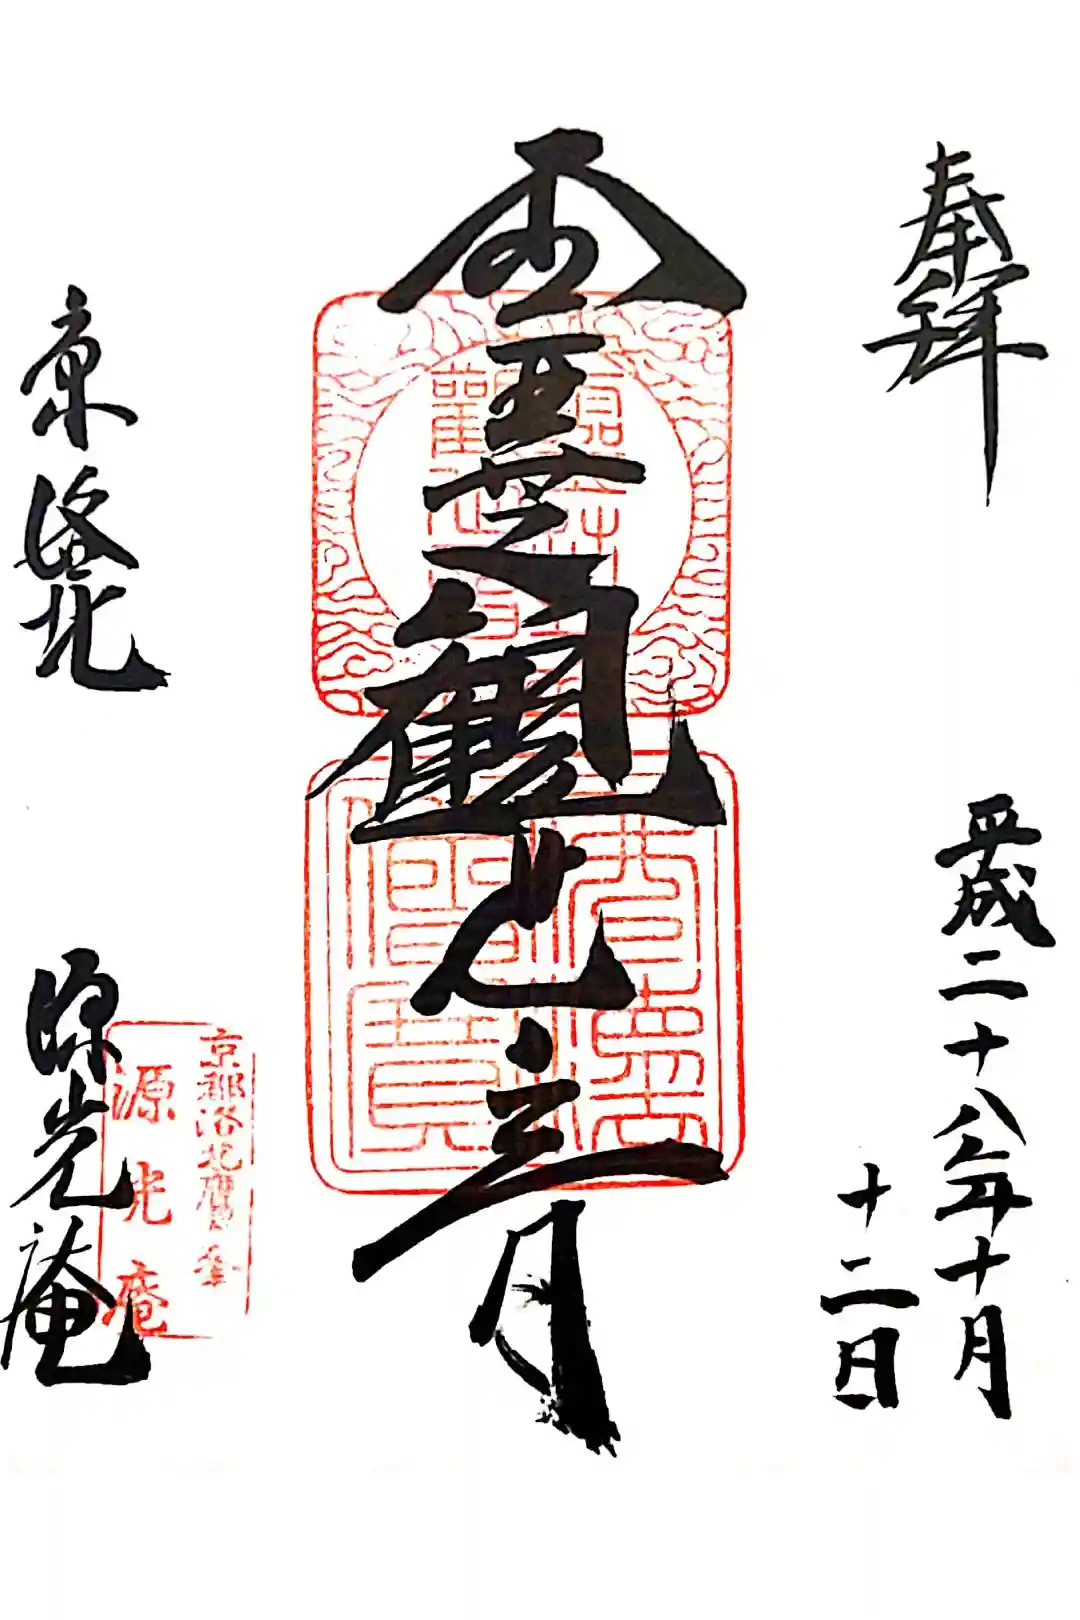 奉拝
平成二十八年十月
十二日
霊芝観世音
京洛北
源光庵
京都洛北鷹ヶ峯
源光庵